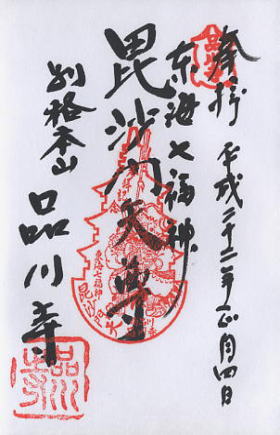 奉拝 平成二十二年正月四日
東海七福神
毘沙門天尊
別格本山 品川寺
東海七福神
品川寺